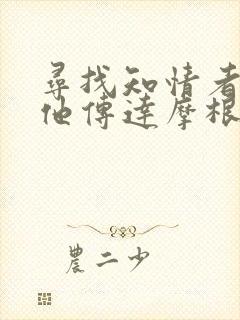 尋找知情者
他傳達摩根
農二少